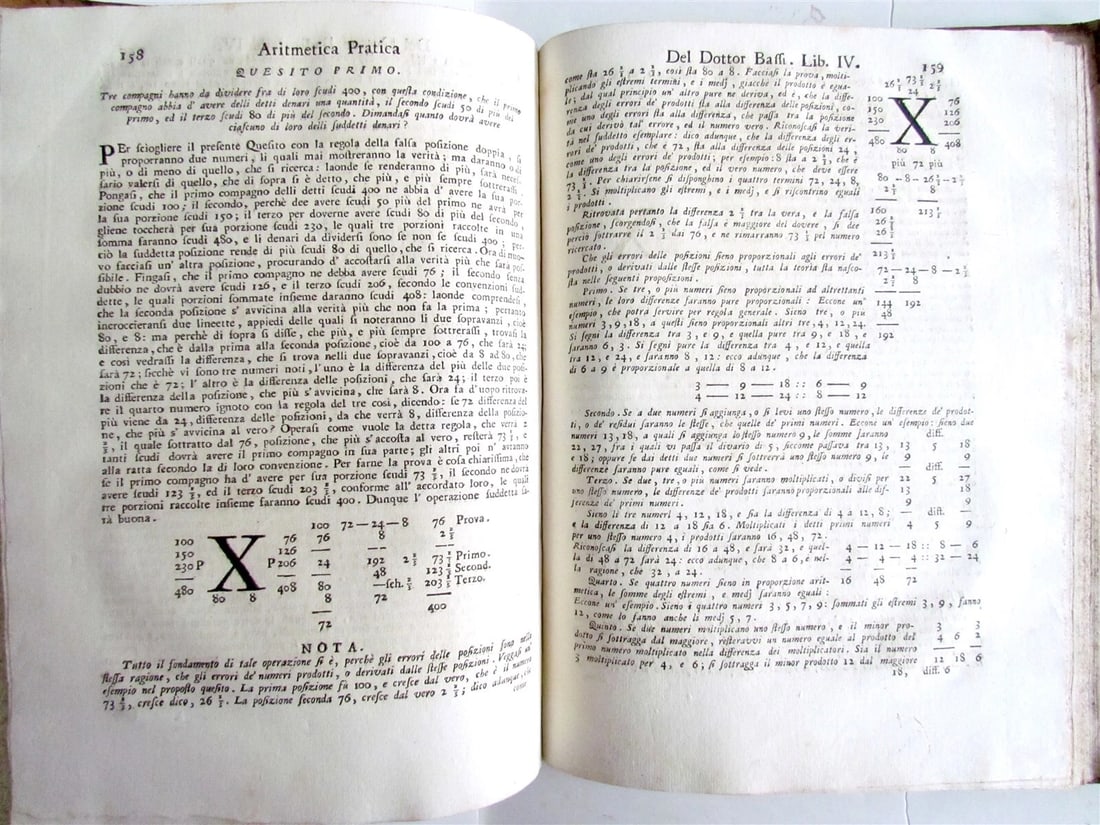 158 Aritmetica Pratica
QUESITO PRIMO.
Tre compagni hanno da dividere fra di loro scudi 400, con questa condizione, che il primo
compagno abbia d' avere delli detti denari una quantità, il secondo scudi 50 di più del
primo, ed il terzo scudi 80 di più del secondo. Dimandasi quanto dovrà avere
ciascuno di loro delli suddetti denari?
PEr sciogliere il presente Quesito con la regola della falsa posizione doppia, si
proporranno due numeri, li quali mai mostreranno la verità; ma daranno o di
più, o di meno di quello, che si ricerca: laonde se renderanno di più, sarà neces-
sario valersi di quello, che di sopra si è detto, che più, e più sempre sottrerassi.
Pongasi, che il primo compagno delli detti scudi 400 ne abbia d' avere la sua por-
zione scudi 100; il secondo, perchè dee avere scudi 50 più del primo ne avrà per
la sua porzione scudi 150; il terzo per doverne avere scudi 80 di più del secondo,
gliene toccherà per sua porzione scudi 230, le quali tre porzioni raccolte in una
somma faranno scudi 480, e li denari da dividersi sono se non se scudi 400; per-
ciò la suddetta posizione rende di più scudi 80 di quello, che si ricerca. Ora di nuo-
vo facciasi un' altra posizione, procurando d' accostarsi alla verità più che sarà pos-
sibile. Fingasi, che il primo compagno ne debba avere scudi 76; il secondo senza
dubbio ne dovrà avere scudi 126, e il terzo scudi 206, secondo le convenzioni sud-
dette, le quali porzioni sommate insieme daranno scudi 408: laonde comprendesi,
che la seconda posizione s' avvicina alla verità più che non fa la prima; pertanto
incroccieransi due lineette, appiedi delle quali si noteranno li due sopravanzi, cioè
80, e 8: ma perchè di sopra si disse, che più, e più sempre sottrerassi, trovasi la
differenza, che è dalla prima alla seconda posizione, cioè da 100 a 76, che sarà 24;
e così vedrassi la differenza, che si trova nelli due sopravanzi, cioè da 8 ad 80, che
sarà 72; sicchè vi sono tre numeri noti, l' uno è la differenza del più delle due posi-
zioni che è 72; l' altro è la differenza delle posizioni, che sarà 24; il terzo poi è
la differenza della posizione, che più s' avvicina, che sarà 8. Ora fa d' uopo ritrova-
re il quarto numero ignoto con la regola del tre così, dicendo: se 72 differenza del
più viene da 24, differenza delle posizioni, da che verrà 8, differenza della posizio-
ne, che più s' avvicina al vero? Operasi come vuole la detta regola, che verrà 2
2/3, il quale sottratto dal 76, posizione, che più s' accosta al vero, resterà 73 1/3, e
tanti scudi dovrà avere il primo compagno in sua parte; gli altri poi n' avranno
alla ratta secondo la di loro convenzione. Per farne la prova è cosa chiarissima, che
se il primo compagno ha d' avere per sua porzione scudi 73 1/3, il secondo ne dovrà
avere scudi 123 1/3, ed il terzo scudi 203 1/3, conforme all' accordato loro, le quali
tre porzioni raccolte insieme faranno scudi 400. Dunque l' operazione suddetta sa-
rà buona.
100 72—24—8 76 Prova.
100 X 76 76 8 2 2/3
150 126 — — —
230 P P 206 24 192 2 2/3 73 1/3 Primo.
— — — 48 123 1/3 Second.
480 408 80 —sch. 2/3 203 1/3 Terzo.
80 8 8 72 —
— 400
72
NOTA.
Tutto il fondamento di tale operazione si è, perchè gli errori delle posizioni sono nella
stessa ragione, che gli errori de' numeri prodotti, o derivati dalle stesse posizioni. Veggasi un
esempio nel proposto quesito. La prima posizione fù 100, e cresce dal vero, che è il numero
73 1/3, cresce dico, 26 2/3. La posizione seconda 76, cresce dal vero 2 2/3; dico adunque, che
come
Del Dottor Bassi. Lib. IV. 159
come sta 26 2/3 a 2 2/3, così sta 80 a 8. Facciasi la prova, molti-
plicando gli estremi termini, e i medj, giacchè il prodotto è egua-
le; dal qual principio un' altro pure ne deriva, ed è, che la diffe-
renza degli errori de' prodotti sta alla differenza delle posizioni, co-
me uno degli errori sta alla differenza, che passa tra la posizione
da cui derivò tal' errore, ed il numero vero. Riconoscasi la veri-
tà nel suddetto esemplare: dico adunque, che la differenza degli er-
rori de' prodotti, che è 72, sta alla differenza delle posizioni 24,
come uno degli errori de' prodotti; per esempio: 8 sta a 2 2/3, che è
la differenza tra la posizione, ed il vero numero, che deve essere
73 1/3. Per chiarirsene si disponghino i quattro termini 72, 24, 8,
2 2/3. Si moltiplicano gli estremi, e i medj, e si riscontrino eguali
i prodotti.
Ritrovata pertanto la differenza 2 2/3 tra la vera, e la falsa
posizione, scorgendosi, che la falsa è maggiore del dovere, si dee
perciò sottrarre il 2 2/3 dai 76, e ne rimarranno 73 1/3 pel numero
ricercato.
Che gli errori delle posizioni sieno proporzionali agli errori de'
prodotti, o derivati dalle stesse posizioni, tutta la teoria sta nasco-
sta nelle seguenti proposizioni.
Primo. Se tre, o più numeri sieno proporzionali ad altrettanti
numeri, le loro differenze saranno pure proporzionali: Eccone un'
esempio, che potrà servire per regola generale. Sieno tre, o più
numeri 3, 9, 18, a questi sieno proporzionali altri tre, 4, 12, 24.
Si segni la differenza tra 3, e 9, e quella pure tra 9, e 18, e
saranno 6, 3. Si segni pure la differenza tra 4, e 12, e quella
tra 12, e 24, e saranno 8, 12: ecco adunque, che la differenza
di 6 a 9 è proporzionale a quella di 8 a 12.
26 2/3 73 1/3 2 2/3
24
100 X 76
150 126
230 206
— —
480 408
80 8
più 72 più
80—8—26 2/3—2 2/3
2 2/3 8
— —
160 213 1/3
26 2/3
26 2/3
—
213 1/3
72—24—8—2 2/3
2 2/3 8
— —
144 192
48
—
192
3 — 9 — 18 :: 6 — 9
4 — 12 — 24 :: 8 — 12
Secondo. Se a due numeri si aggiunga, o si levi uno stesso numero, le differenze de' prodot-
ti, o de' residui saranno le stesse, che quelle de' primi numeri. Eccone un' esempio: sieno due
numeri 13, 18, a quali si aggiunga lo stesso numero 9, le somme saranno diff.
22, 27, fra i quali vi passa il divario di 5, siccome passava tra 13, 13 5 18
e 18; oppure se dai detti due numeri si sottrerrà uno stesso numero 9, le 9 9
differenze saranno pure eguali, come si vede. — diff. —
Terzo. Se due, tre, o più numeri saranno moltiplicati, o divisi per 22 5 27
uno stesso numero, le differenze de' prodotti saranno proporzionali alle dif- 13 18
ferenze de' primi numeri. 9 9
Sieno li tre numeri 4, 12, 18, e sia la differenza di 4 a 12, 8; — diff. —
e la differenza di 12 a 18 sia 6. Moltiplicati i detti primi numeri 4 5 9
per uno stesso numero 4, i prodotti saranno 16, 48, 72.
Riconoscasi la differenza di 16 a 48, e sarà 32, e quel- 4 — 12 — 18 :: 8 — 6
la di 48 a 72 sarà 24: ecco adunque, che 8 a 6, e nel- 4 — 4 — 4 :: 32 — 24
la ragione, che 32, a 24. — — —
Quarto. Se quattro numeri sieno in proporzione arit- 16 48 72
metica, le somme degli estremi, e medj saranno eguali:
Eccone un' esempio. Sieno i quattro numeri 3, 5, 7, 9: sommati gli estremi 3, 9, fanno
12, come lo fanno anche li medj 5, 7.
Quinto. Se due numeri moltiplicano uno stesso numero, e il minor pro- 3 3
dotto si sottragga dal maggiore, resteravvi un numero eguale al prodotto del 4 6 2
primo numero moltiplicato nella differenza dei moltiplicatori. Sia il numero — — —
3 moltiplicato per 4, e 6; si sottragga il minor prodotto 12 dal maggiore 12 18 6
18, diff. 6